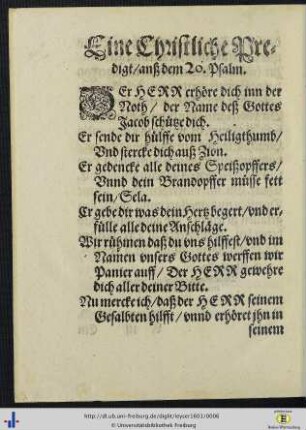 Eine Christliche Pre-
digt/auß dem 20. Psalm.
DEr HERR erhöre dich inn der
Noth/ der Name deß Gottes
Jacob schütze dich.
Er sende dir hülffe vom Heiligthumb/
Vnd stercke dich auß Zion.
Er gedencke alle deines Speißopffers/
Vnnd dein Brandopffer müsse fett
sein/Sela.
Er gebe dir was dein Hertz begert/vnd er-
fülle alle deine Anschläge.
Wir rühmen daß du vns hilffest/vnd im
Namen vnsers Gottes werffen wir
Panier auff/ Der HERR gewehre
dich aller deiner Bitte.
Nu mercke ich/daß der HERR seinem
Gesalbten hilfft/vnnd erhöret jhn in
seinem
http://dl.ub.uni-freiburg.de/diglit/keyser1603/0006
© Universitätsbibliothek Freiburg